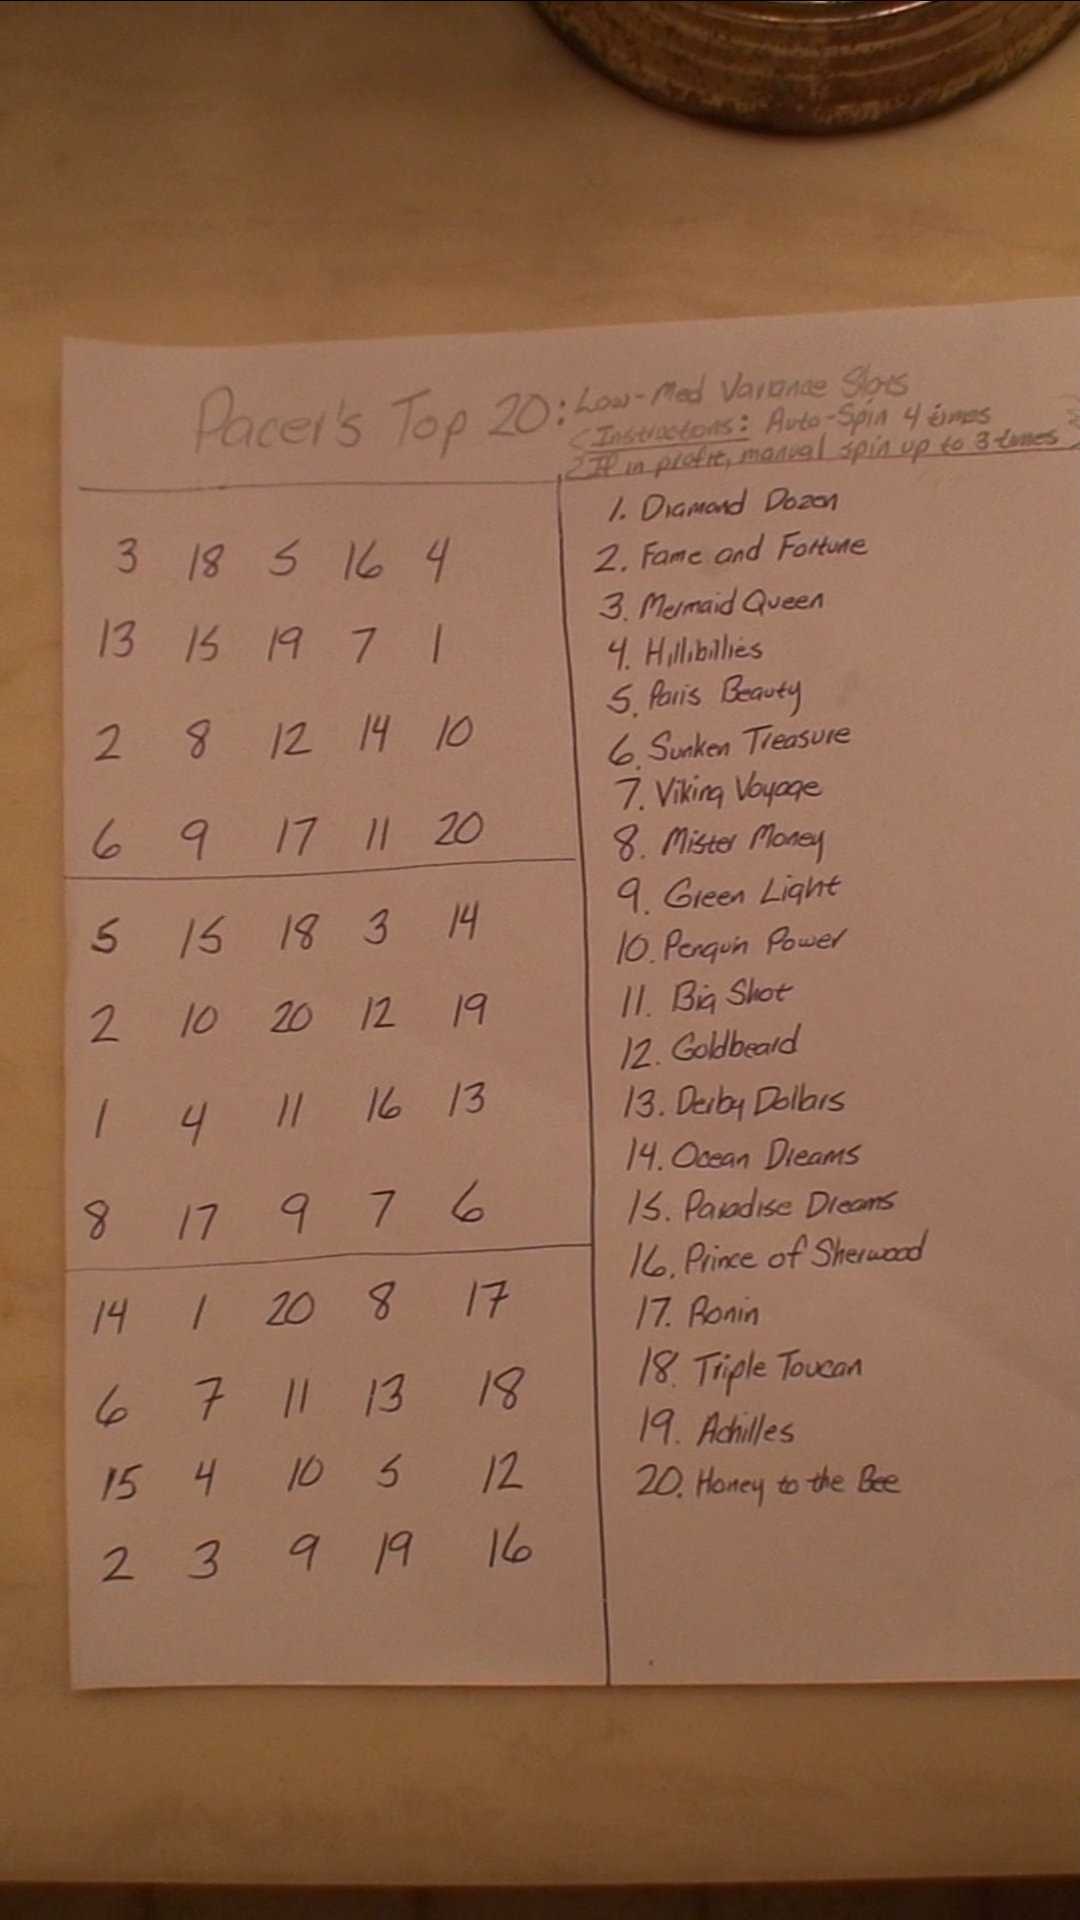 Pacer's Top 20: Low-Med Variance Slots
Instructions: Auto-Spin 4 times
If in profit, manual spin up to 3 times
3 18 5 16 4
13 15 19 7 1
2 8 12 14 10
6 9 17 11 20
5 15 18 3 14
2 10 20 12 19
1 4 11 16 13
8 17 9 7 6
14 1 20 8 17
6 7 11 13 18
15 4 10 5 12
2 3 9 19 16
1. Diamond Dozen
2. Fame and Fortune
3. Mermaid Queen
4. Hillibillies
5. Paris Beauty
6. Sunken Treasure
7. Viking Voyage
8. Mister Money
9. Green Light
10. Penguin Power
11. Big Shot
12. Goldbeard
13. Derby Dollars
14. Ocean Dreams
15. Paradise Dreams
16. Prince of Sherwood
17. Ronin
18. Triple Toucan
19. Achilles
20. Honey to the Bee